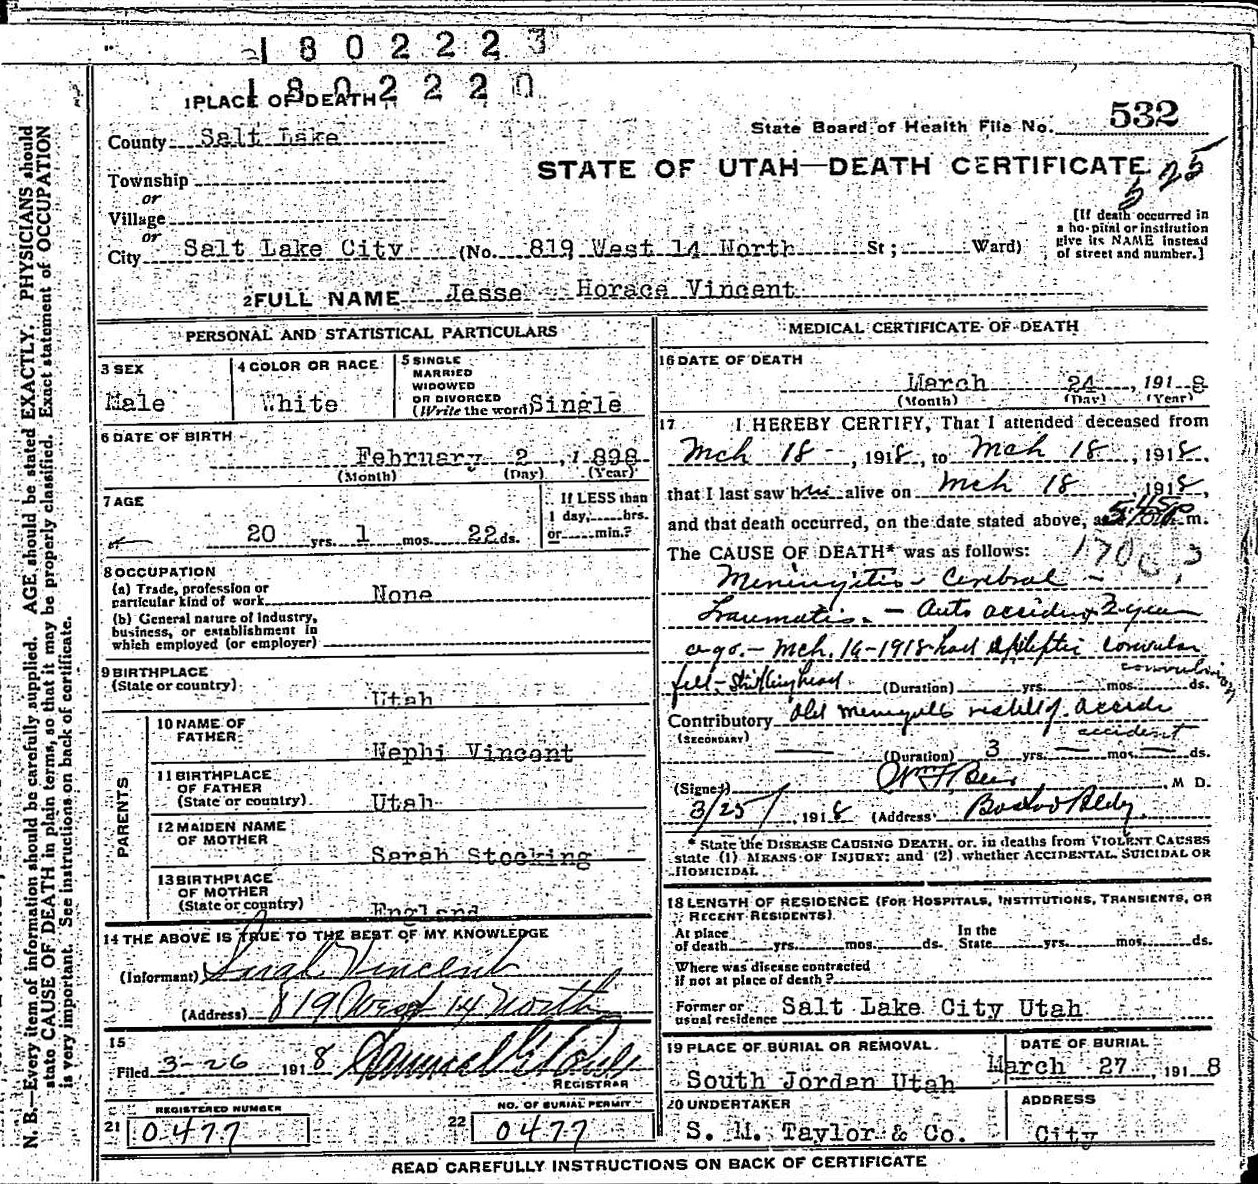 1802223
1802220
1 PLACE OF DEATH
County Salt Lake
State Board of Health File No. 532
STATE OF UTAH—DEATH CERTIFICATE
525
Township
or
Village
or
City Salt Lake City (No. 819 West 14 North St; Ward)
[If death occurred in
a hospital or institution
give its NAME instead
of street and number.]
2 FULL NAME Jesse Horace Vincent
PERSONAL AND STATISTICAL PARTICULARS
3 SEX
Male
4 COLOR OR RACE
White
5 SINGLE
MARRIED
WIDOWED
OR DIVORCED
(Write the word) Single
6 DATE OF BIRTH
February 2, 1898
(Month) (Day) (Year)
7 AGE
20 yrs. 1 mos. 22 ds.
If LESS than
1 day, hrs.
or min.?
8 OCCUPATION
(a) Trade, profession or
particular kind of work None
(b) General nature of industry,
business, or establishment in
which employed (or employer)
9 BIRTHPLACE
(State or country)
Utah
PARENTS
10 NAME OF
FATHER
Nephi Vincent
11 BIRTHPLACE
OF FATHER
(State or country) Utah
12 MAIDEN NAME
OF MOTHER
Sarah Stocking
13 BIRTHPLACE
OF MOTHER
(State or country) England
14 THE ABOVE IS TRUE TO THE BEST OF MY KNOWLEDGE
(Informant) Sarah Vincent
(Address) 819 West 14 North
15
Filed 3-26 1918
REGISTRAR
REGISTERED NUMBER
21 0477
NO. OF BURIAL PERMIT
22 0477
MEDICAL CERTIFICATE OF DEATH
16 DATE OF DEATH
March 24, 1918
(Month) (Day) (Year)
17 I HEREBY CERTIFY, That I attended deceased from
Mch 18, 1918, to Mch 18, 1918,
that I last saw him alive on Mch 18, 1918,
and that death occurred, on the date stated above, at m.
The CAUSE OF DEATH* was as follows:
Meningitis - Cerebral -
Traumatic - Auto accident 2 years
ago. - Mch. 16-1918 had Epileptic convulsion
convulsion
fell - striking head (Duration) yrs. mos. ds.
Contributory Old Meningitis result of accident
accident
(SECONDARY) (Duration) 3 yrs. mos. ds.
(Signed) M D.
3/25, 1918 (Address) Boston Bldg.
* State the DISEASE CAUSING DEATH, or, in deaths from VIOLENT CAUSES
state (1) MEANS OF INJURY; and (2) whether ACCIDENTAL, SUICIDAL OR
HOMICIDAL
18 LENGTH OF RESIDENCE (FOR HOSPITALS, INSTITUTIONS, TRANSIENTS, OR
RECENT RESIDENTS)
At place
of death yrs. mos. ds.
In the
State yrs. mos. ds.
Where was disease contracted
if not at place of death?
Former or
usual residence Salt Lake City Utah
19 PLACE OF BURIAL OR REMOVAL
South Jordan Utah
DATE OF BURIAL
March 27, 1918
20 UNDERTAKER
S. M. Taylor & Co.
ADDRESS
City
READ CAREFULLY INSTRUCTIONS ON BACK OF CERTIFICATE
N. B.—Every item of information should be carefully supplied. AGE should be stated EXACTLY. PHYSICIANS should
state CAUSE OF DEATH in plain terms, so that it may be properly classified. Exact statement of OCCUPATION
is very important. See instructions on back of certificate.